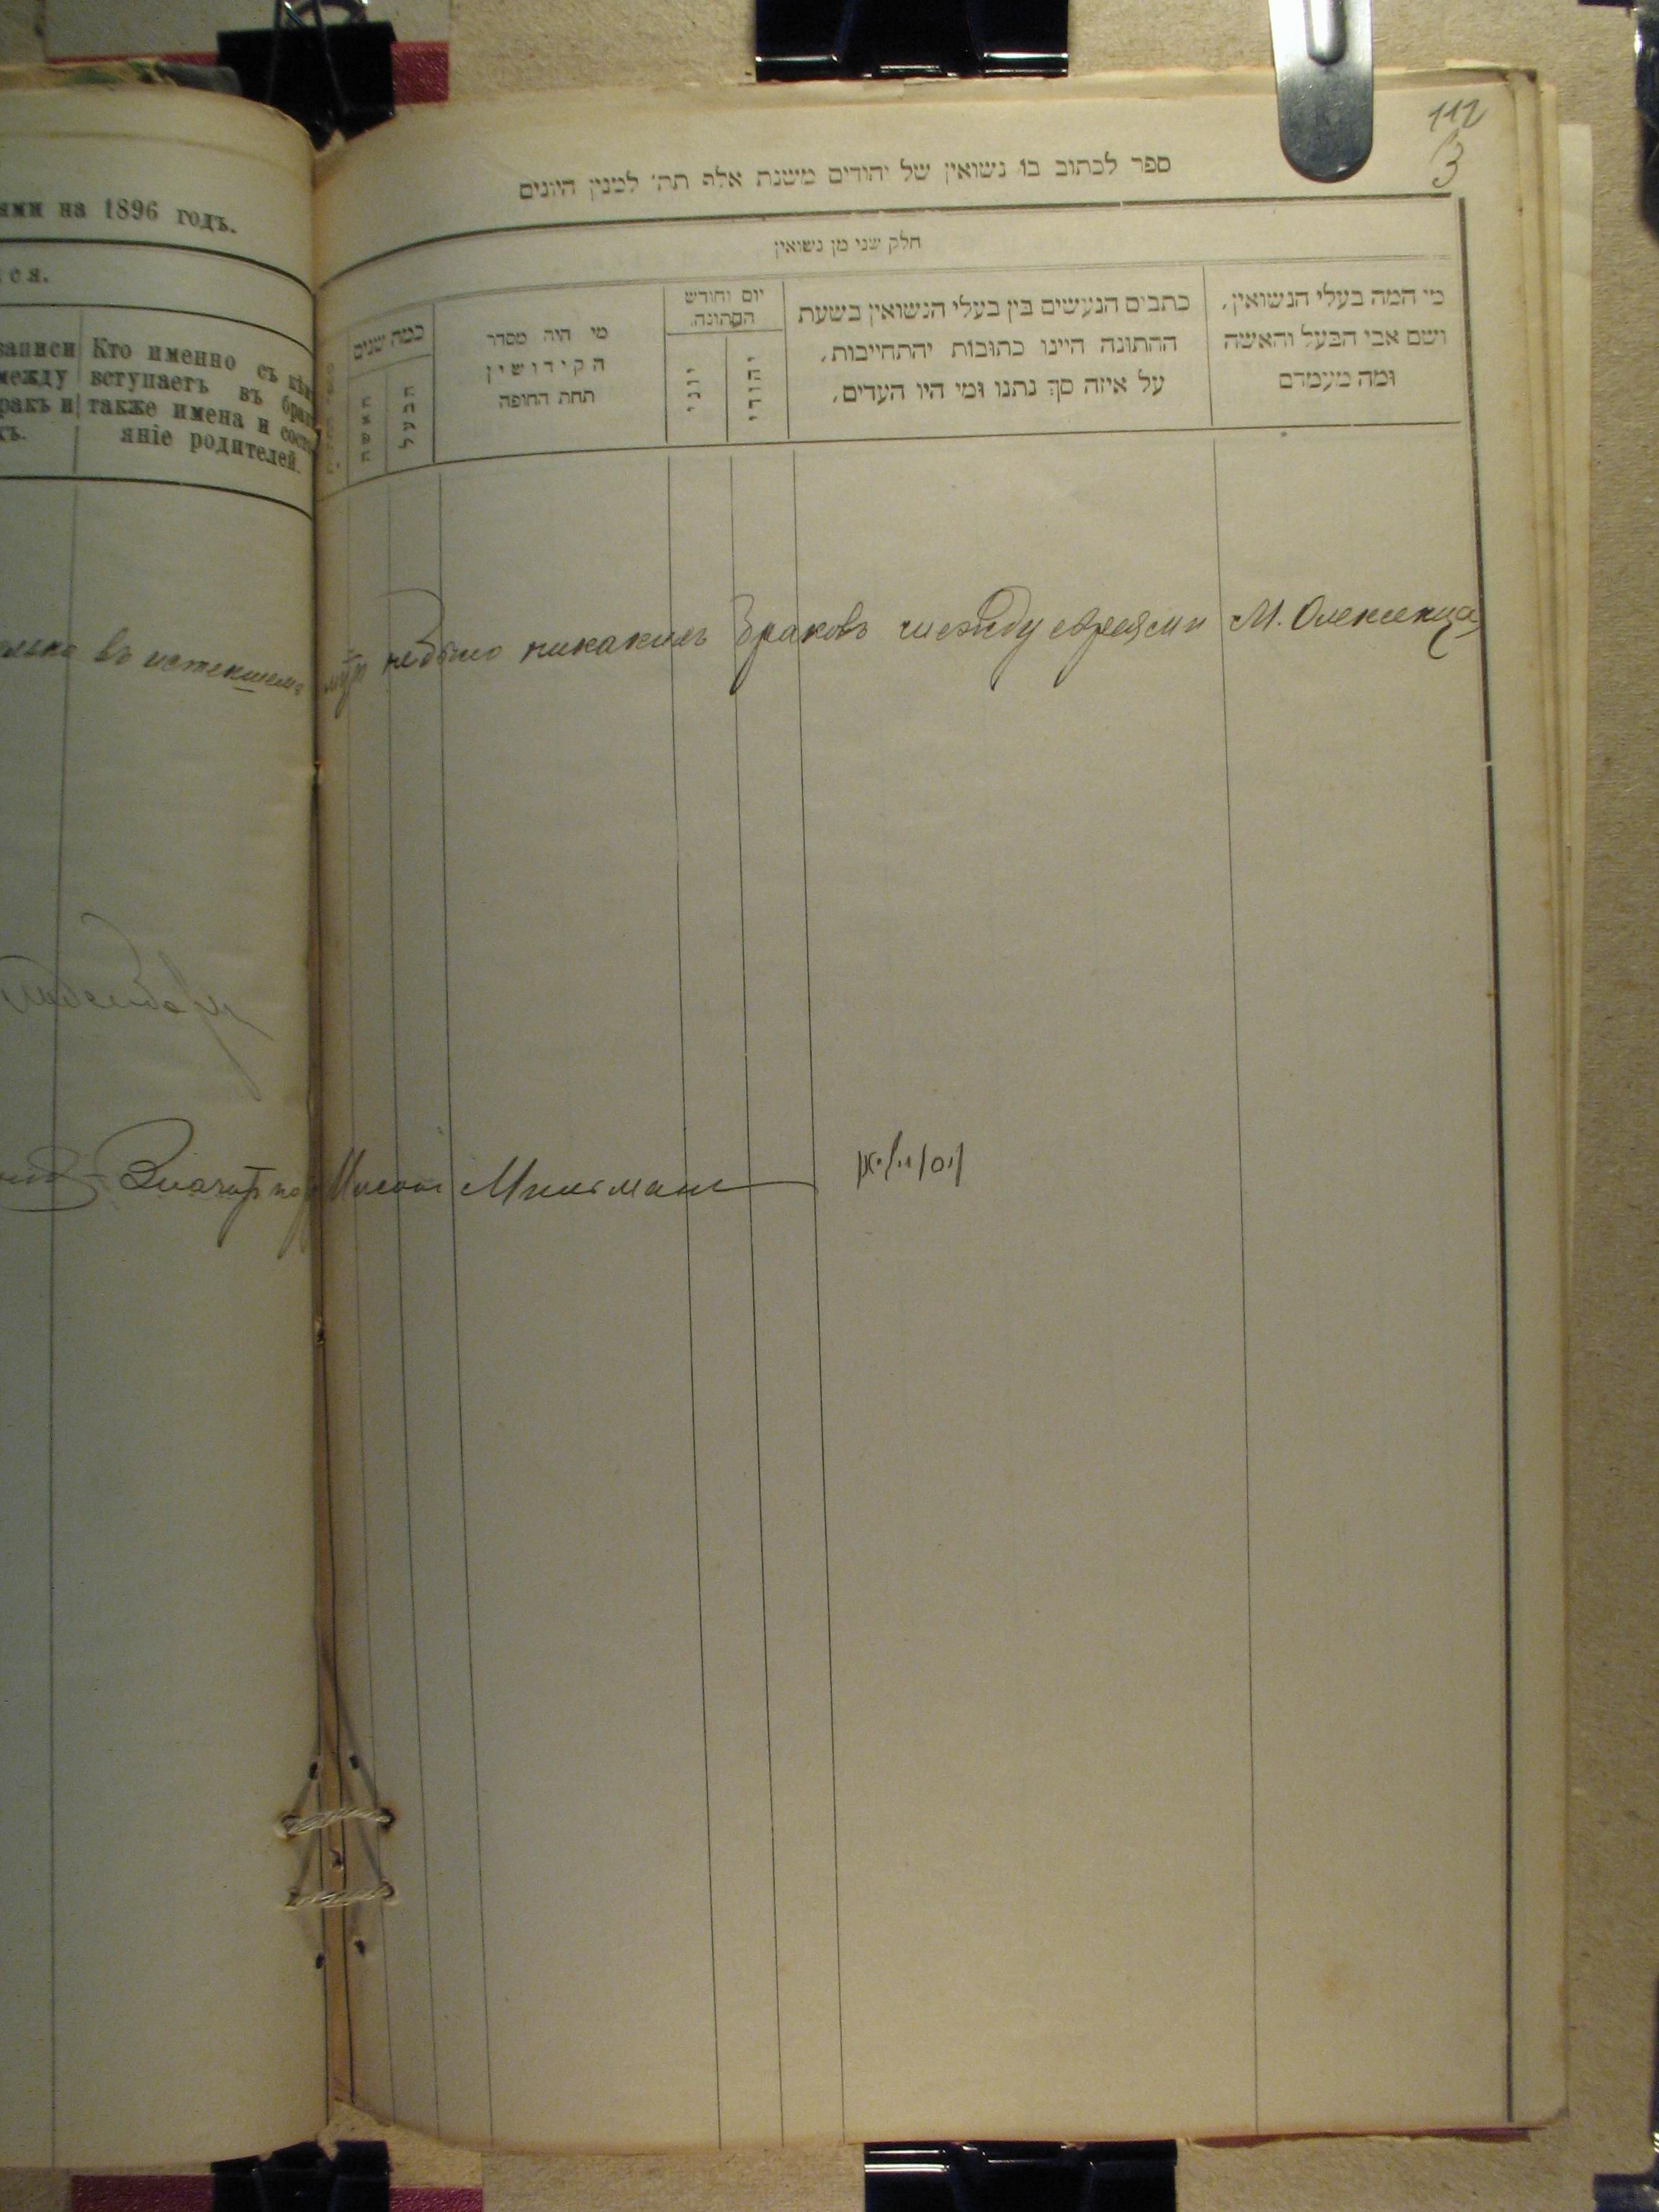 ями на 1896 годъ.
ся.
записи
между
ракъ и
Кто именно съ кѣмъ
вступаетъ въ бракъ
также имена и состо
яніе родителей.
въ истекшемъ
112
3
ספר לכתוב בו נשואין של יהודים משנת אלף תת׳ למנין היונים
חלק שני מן נשואין
מי המה בעלי הנשואין,
ושם אבי הבעל והאשה
ומה מעמדם
כתבים הנעשים בין בעלי הנשואין בשעת
ההתונה היינו כתובות יהתחייבות,
על איזה סך נתנו ומי היו העדים,
יום וחודש
החתונה.
יהודי
יוני
מי היה מסדר
הקידושין
תחת החופה
כמה שנים
הבעל
האשה
небыло никакихъ браковъ между евреями М. Олексинца
Мильманъ